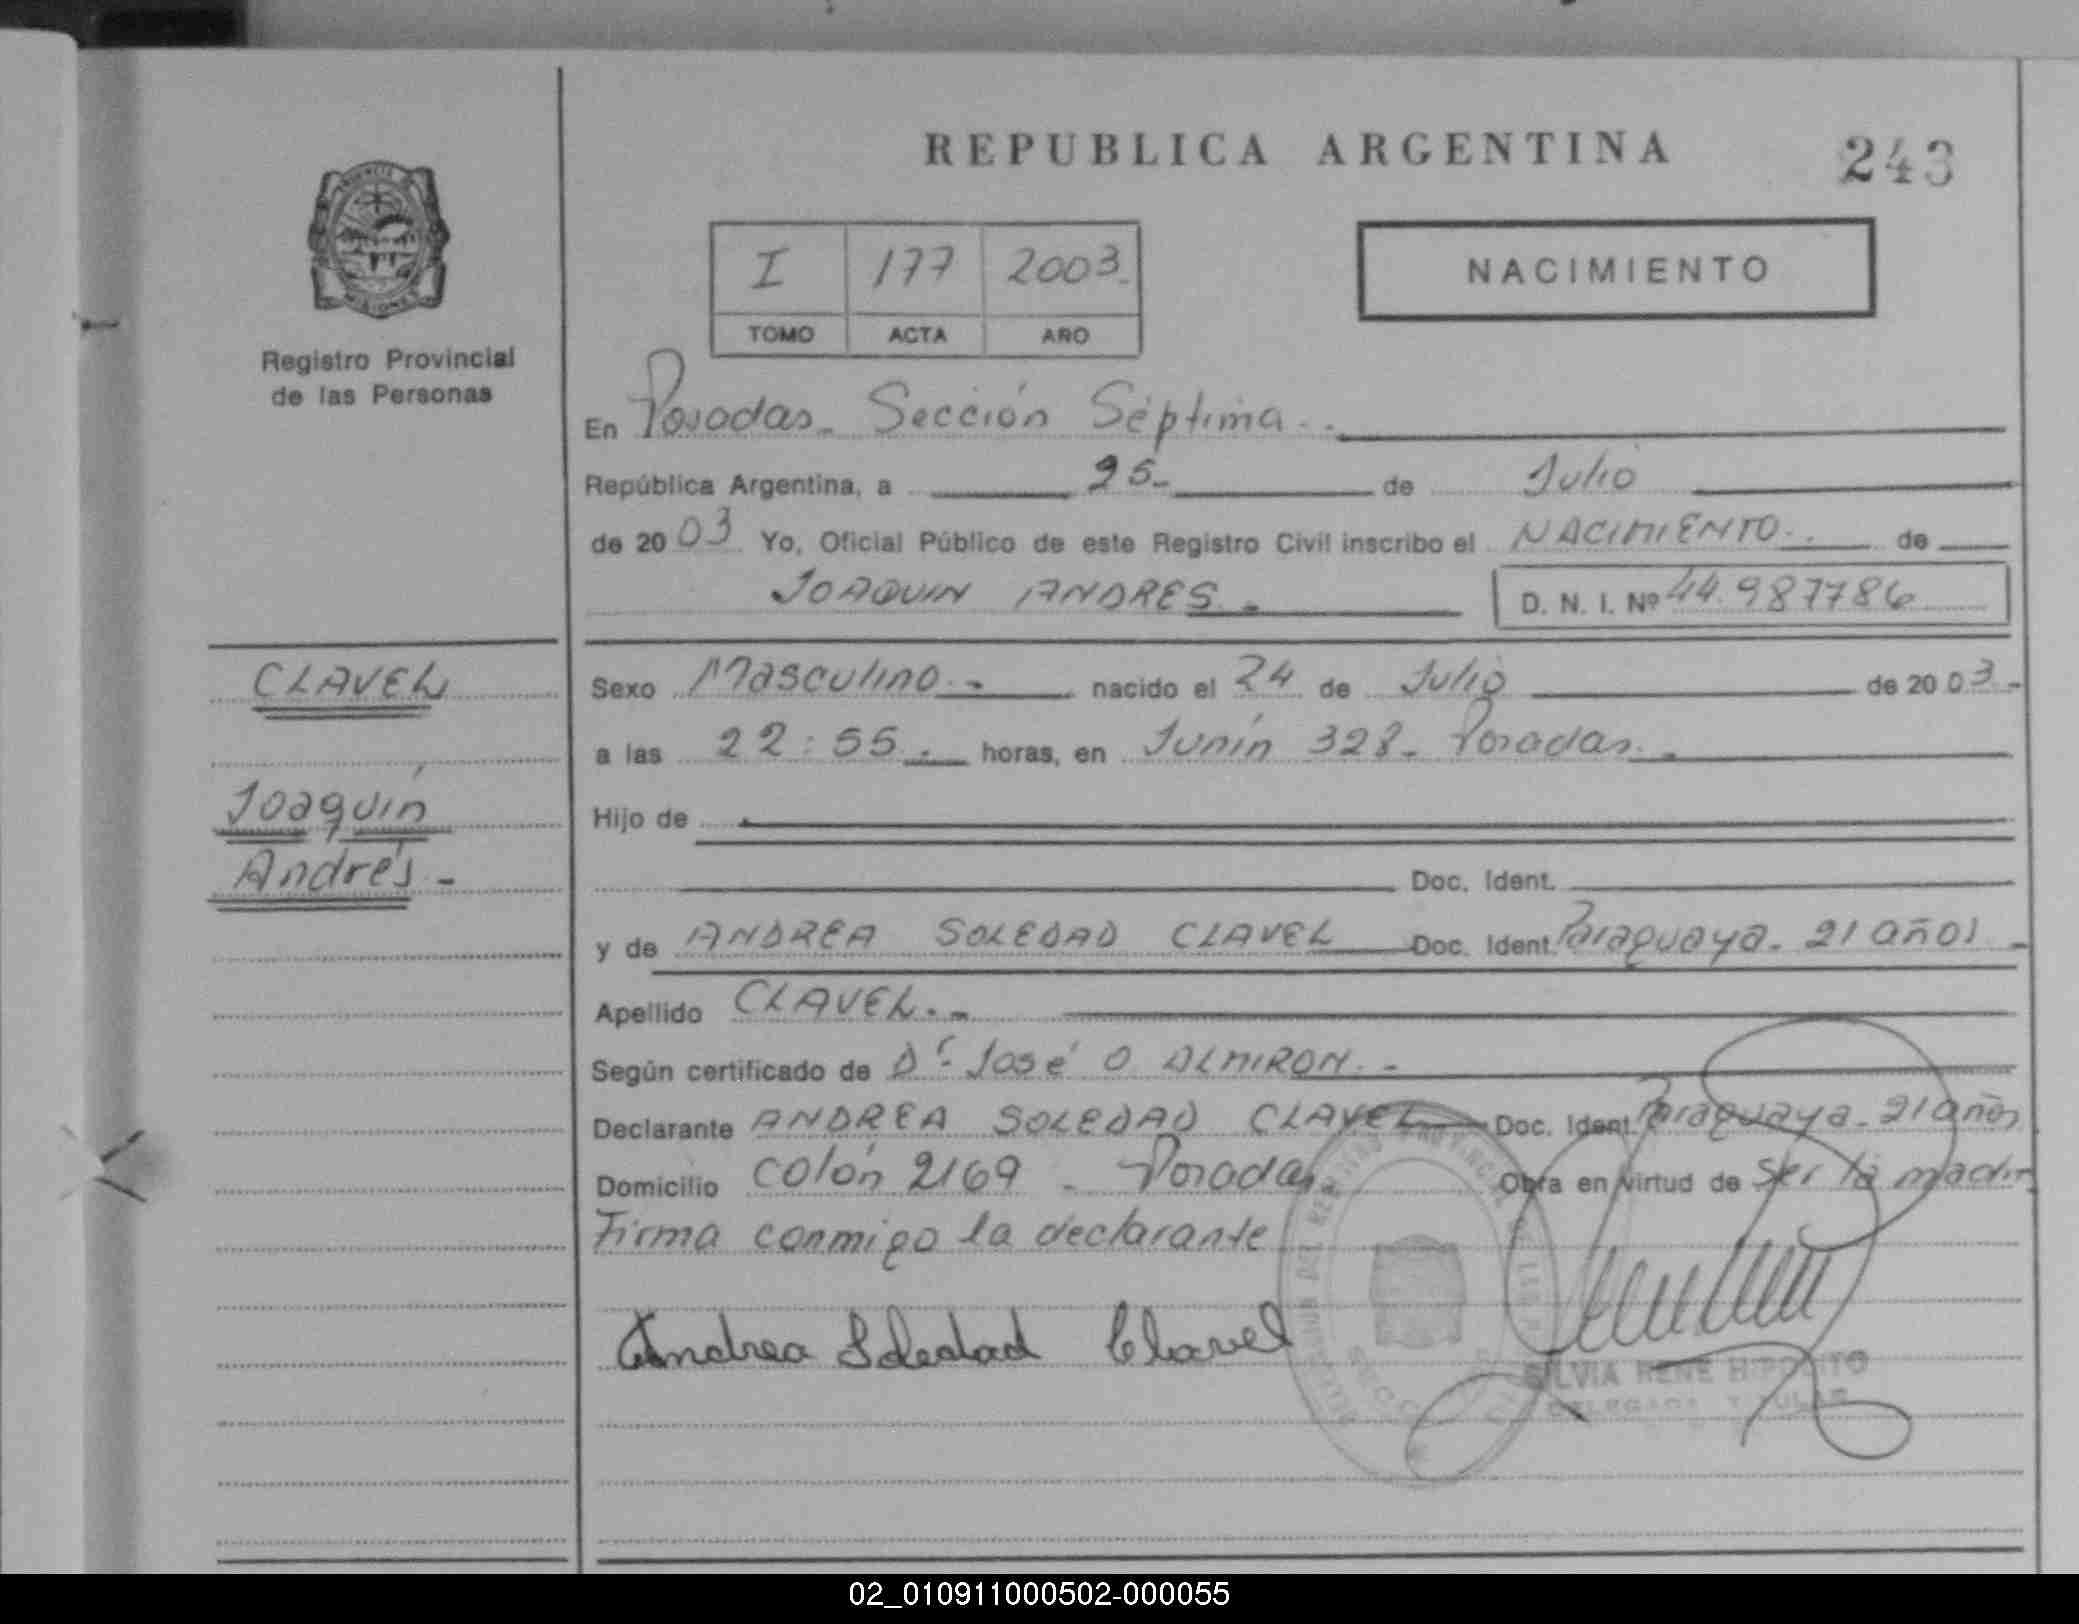 REPUBLICA ARGENTINA
243
I 177 2003.
TOMO ACTA AÑO
NACIMIENTO
Registro Provincial
de las Personas
En Posadas. Sección Séptima.
República Argentina, a 25 de Julio
de 2003 Yo, Oficial Público de este Registro Civil inscribo el NACIMIENTO. de
JOAQUIN ANDRES.
D. N. I. Nº 44.987786
CLAVEL
Joaquín
Andrés.
Sexo Masculino. nacido el 24 de Julio de 2003.
a las 22:55. horas, en Junín 328. Posadas.
Hijo de
Doc. Ident.
y de ANDREA SOLEDAD CLAVEL Doc. Ident. Paraguaya. 21 años
Apellido CLAVEL.
Según certificado de Dr. José O ALMIRON.
Declarante ANDREA SOLEDAD CLAVEL Doc. Ident. Paraguaya. 21 años
Domicilio Colón 2169 - Posadas. Obra en virtud de Ser la madre
Firma conmigo la declarante
Andrea Soledad Clavel
SILVIA RENE HIPOLITO
DELEGADA TITULAR
02_010911000502-000055